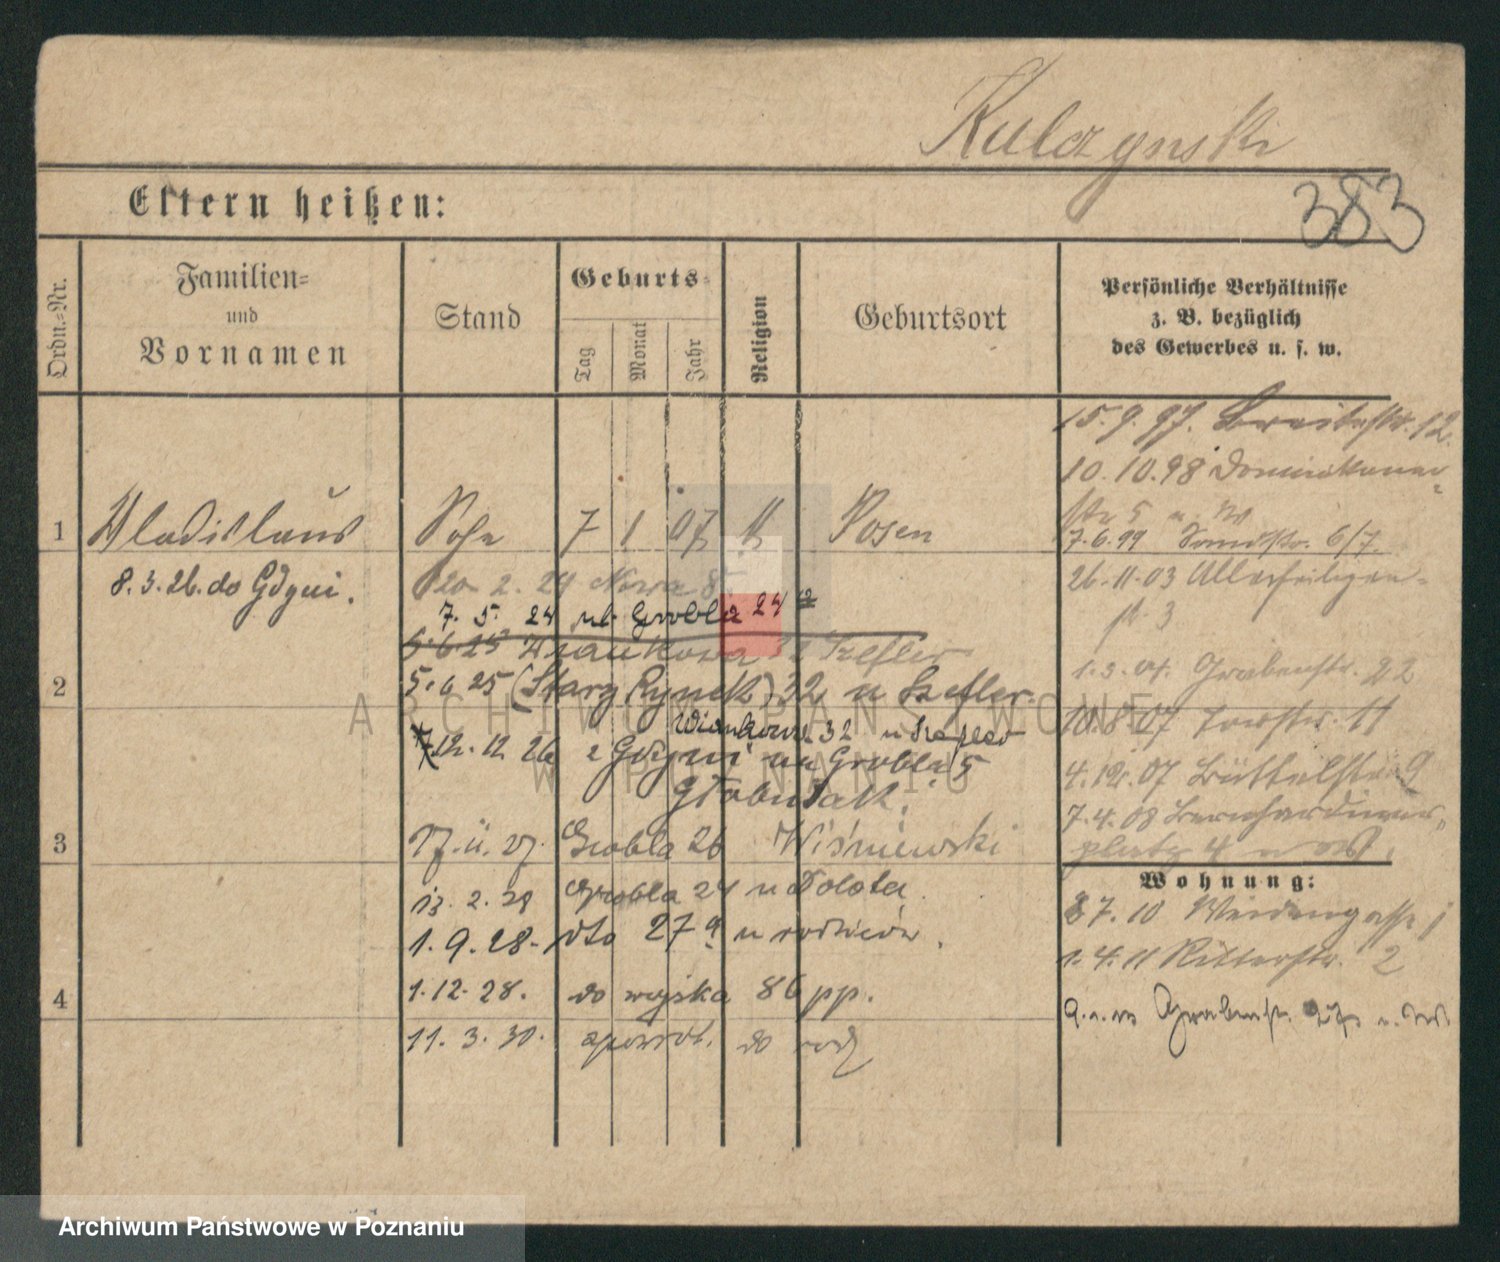 Kulczynski
383
Eltern heißen:
Ordn.-Nr.
Familien-
und
Vornamen
Stand
Geburts-
Tag
Monat
Jahr
Religion
Geburtsort
Persönliche Verhältnisse
z. B. bezüglich
des Gewerbes u. s. w.
15.9.97. Breitestr. 12.
10.10.98 Dominikaner-
str 5
1 Wladislaus Sohn 7 1 07 k Posen
7.6.99 Sandstr. 6/7.
8.3.26. do Gdyni.
20 2. 24 Nowa 8
26.11.03 Allerheiligen-
str. 3
7. 5. 24 ul. Grobla 24
5.6.25 Wiankowa u Szefler
1.3.04. Grabenstr. 22
2
5.6 25 (Stary Rynek) 32 u Szefler.
Wiankowa 32 u Szefler
10.8.07 Torstr. 11
12.12 26 z Gdyni na Grobla 5
4.12.07 Büttelstr 9
7.4.08 Bernhardiner-
platz 4
3
17.11.27. Grobla 26 Wiśniewski
Wohnung:
13. 2. 28 Grobla 24 u
7.10 Weidengasse
1.9.28. dto 27a u rodziców.
1.4.11 Ritterstr. 2
4
1.12.28. do wojska 86 pp.
Grabenstr.
11. 3. 30. z powrot. do rodz
ARCHIWUM PAŃSTWOWE
W POZNANIU
Archiwum Państwowe w Poznaniu